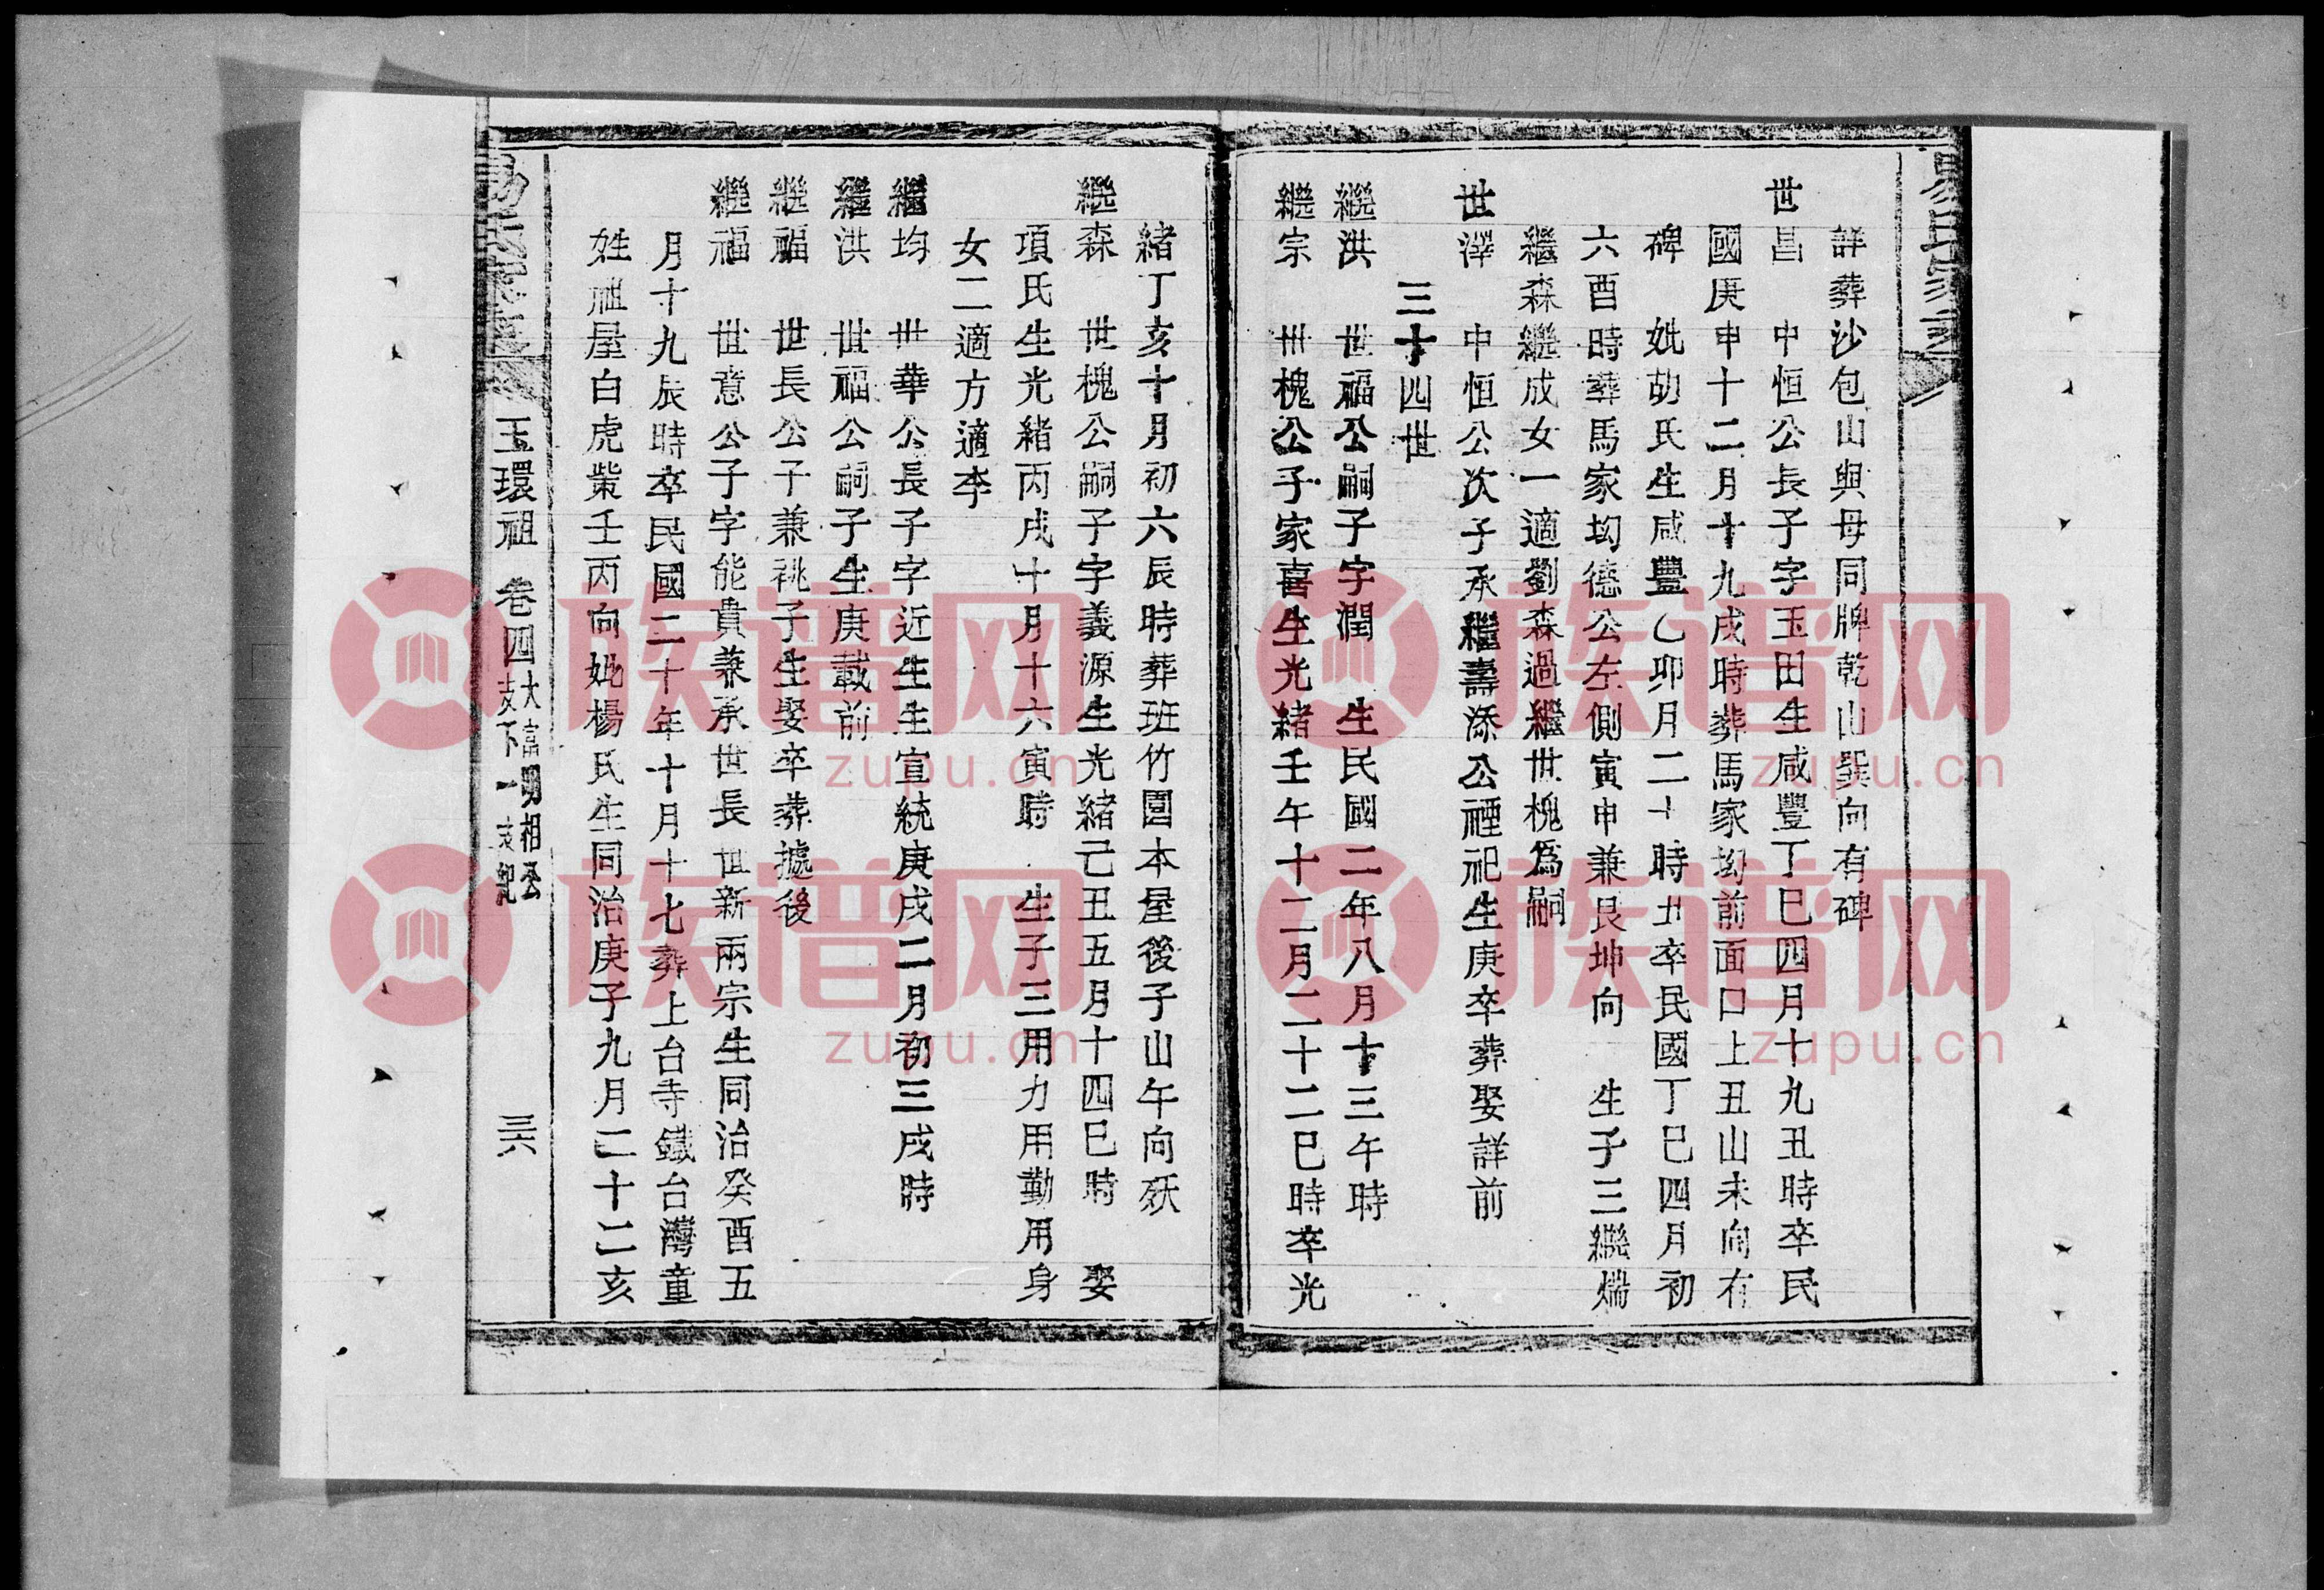 易氏家
詳葬沙包山與母同牌乾山巽向有碑
世昌　中恒公長子字玉田生咸豐丁巳四月十九丑時卒民
國庚申十二月十九戌時葬馬家坳前面口上丑山未向有
碑　妣胡氏生咸豐乙卯月二十時丑卒民國丁巳四月初
六酉時葬馬家坳德公左側寅申兼艮坤向　生子三繼燸
繼森繼成女一適劉森過繼世槐為嗣
世澤　中恒公次子承繼壽添公禋祀生庚卒葬娶詳前
三十四世
繼洪　世福公嗣子字潤　生民國二年八月十三午時
繼宗　世槐公子家喜生光緒壬午十二月二十二巳時卒光
緒丁亥十月初六辰時葬班竹園本屋後子山午向殀
繼森　世槐公嗣子字義源生光緒己丑五月十四巳時　娶
項氏生光緒丙戌十月十六寅時　生子三用力用勤用身
女二適方適李
繼均　世華公長子字近生生宣統庚戌二月初三戌時
繼洪　世福公嗣子生庚載前
繼福　世長公子兼祧子生娶卒葬據後
繼福　世意公子字能貴兼承世長世新兩宗生同治癸酉五
月十九辰時卒民國二十年十月十七葬上台寺鐵台灣童
姓祖屋白虎嘴壬丙向妣楊氏生同治庚子九月二十二亥
玉環祖　卷四　大富支下　明相公一支紀　三六
族谱网
zupu.cn
族谱网
zupu.cn
族谱网
zupu.cn
族谱网
zupu.cn